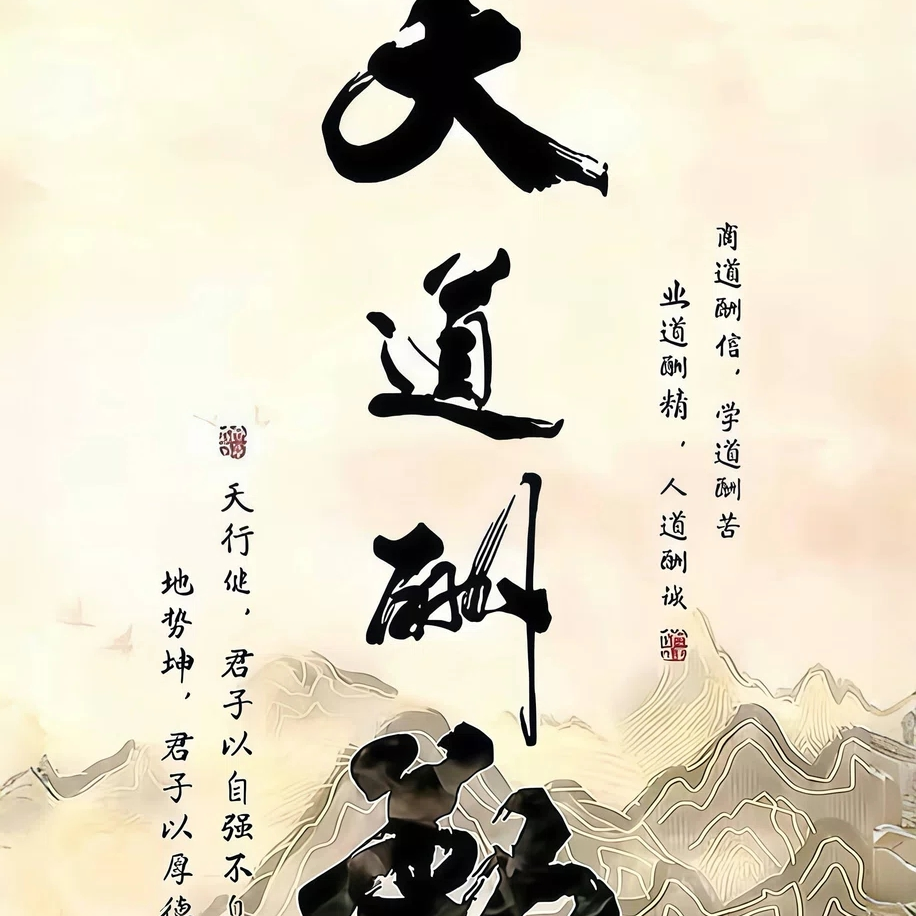 商道酬信，学道酬苦
业道酬精，人道酬诚
天道酬勤
天行健，君子以自强不
地势坤，君子以厚德